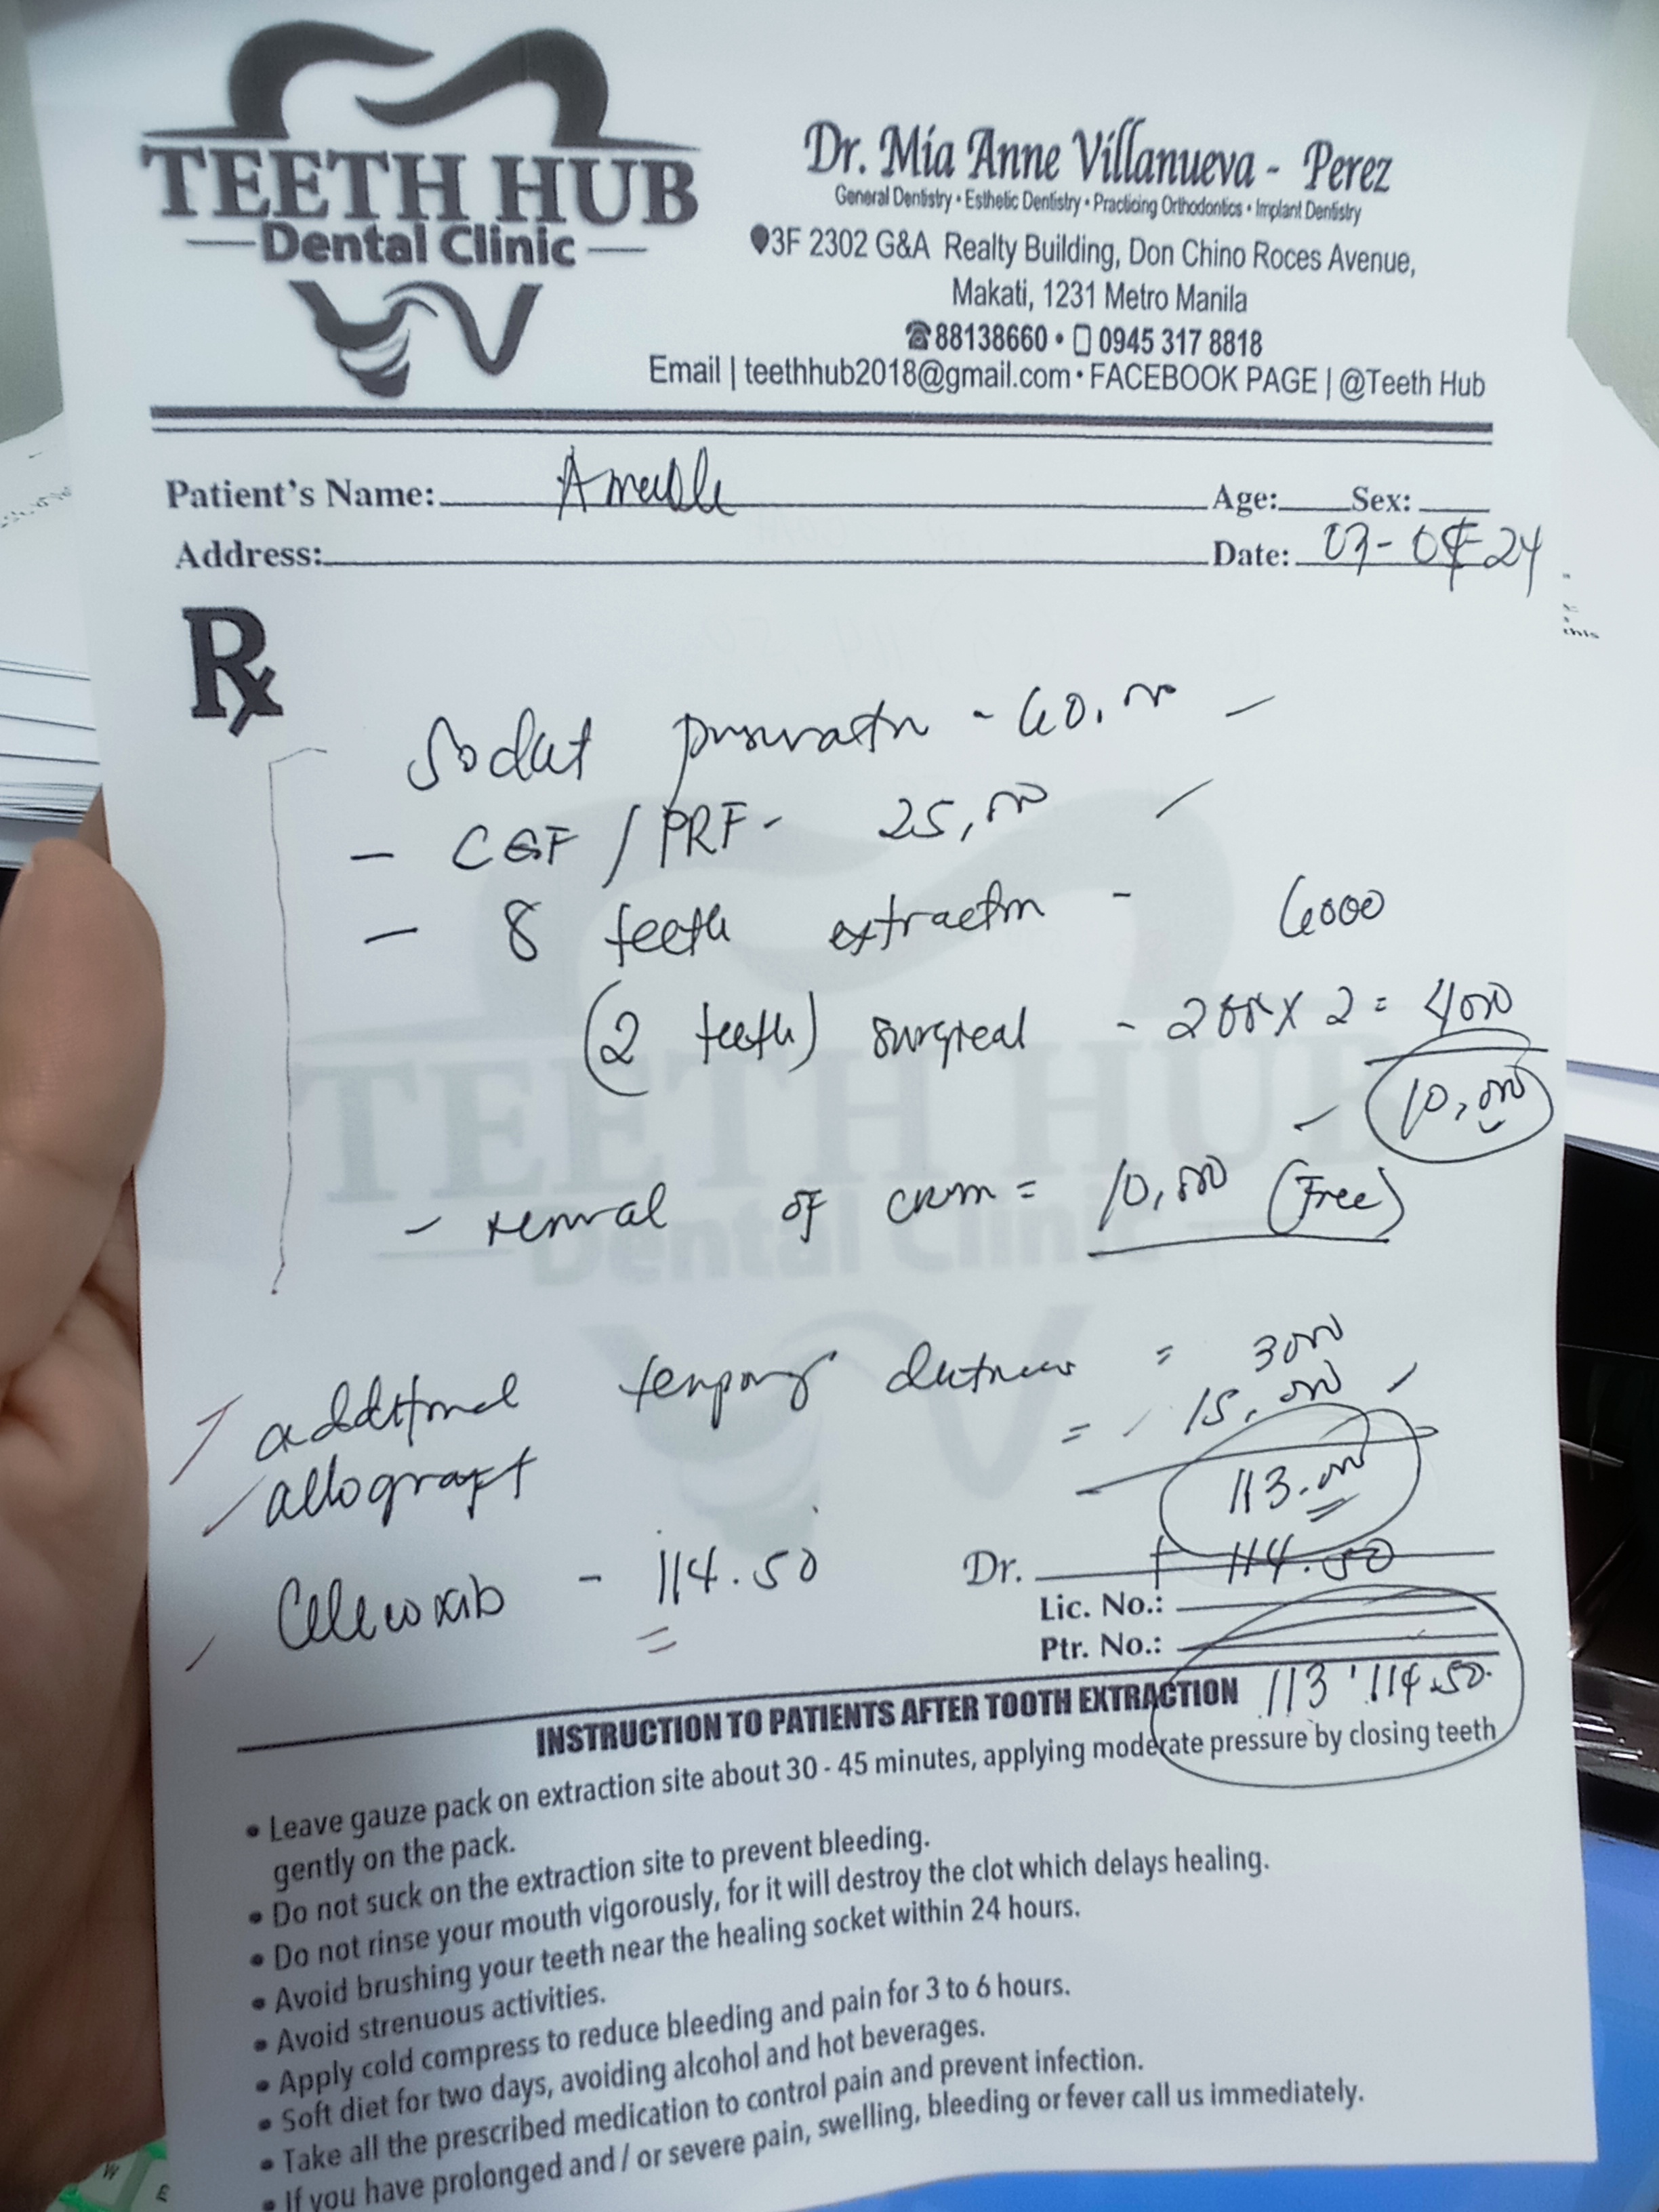 TEETH HUB
Dental Clinic
Dr. Mia Anne Villanueva - Perez
General Dentistry • Esthetic Dentistry • Practicing Orthodontics • Implant Dentistry
3F 2302 G&A Realty Building, Don Chino Roces Avenue,
Makati, 1231 Metro Manila
88138660 • 0945 317 8818
Email | teethhub2018@gmail.com • FACEBOOK PAGE | @Teeth Hub
Patient's Name: Age: Sex:
Address: Date: 24
Rx
- 60,000 -
- CGF / PRF - 25,000
- 8 teeth extraction - 6000
(2 teeth) surgical - 2000 x 2 = 4000
10,000
- removal of crown = 10,000 (Free)
additional temporary dentures = 3000
allograft = 15,000
113,000
Celecoxib - 114.50
Dr. 114.50
Lic. No.:
Ptr. No.:
113,114.50
INSTRUCTION TO PATIENTS AFTER TOOTH EXTRACTION
• Leave gauze pack on extraction site about 30 - 45 minutes, applying moderate pressure by closing teeth
gently on the pack.
• Do not suck on the extraction site to prevent bleeding.
• Do not rinse your mouth vigorously, for it will destroy the clot which delays healing.
• Avoid brushing your teeth near the healing socket within 24 hours.
• Avoid strenuous activities.
• Apply cold compress to reduce bleeding and pain for 3 to 6 hours.
• Soft diet for two days, avoiding alcohol and hot beverages.
• Take all the prescribed medication to control pain and prevent infection.
• If you have prolonged and / or severe pain, swelling, bleeding or fever call us immediately.
this
W
E